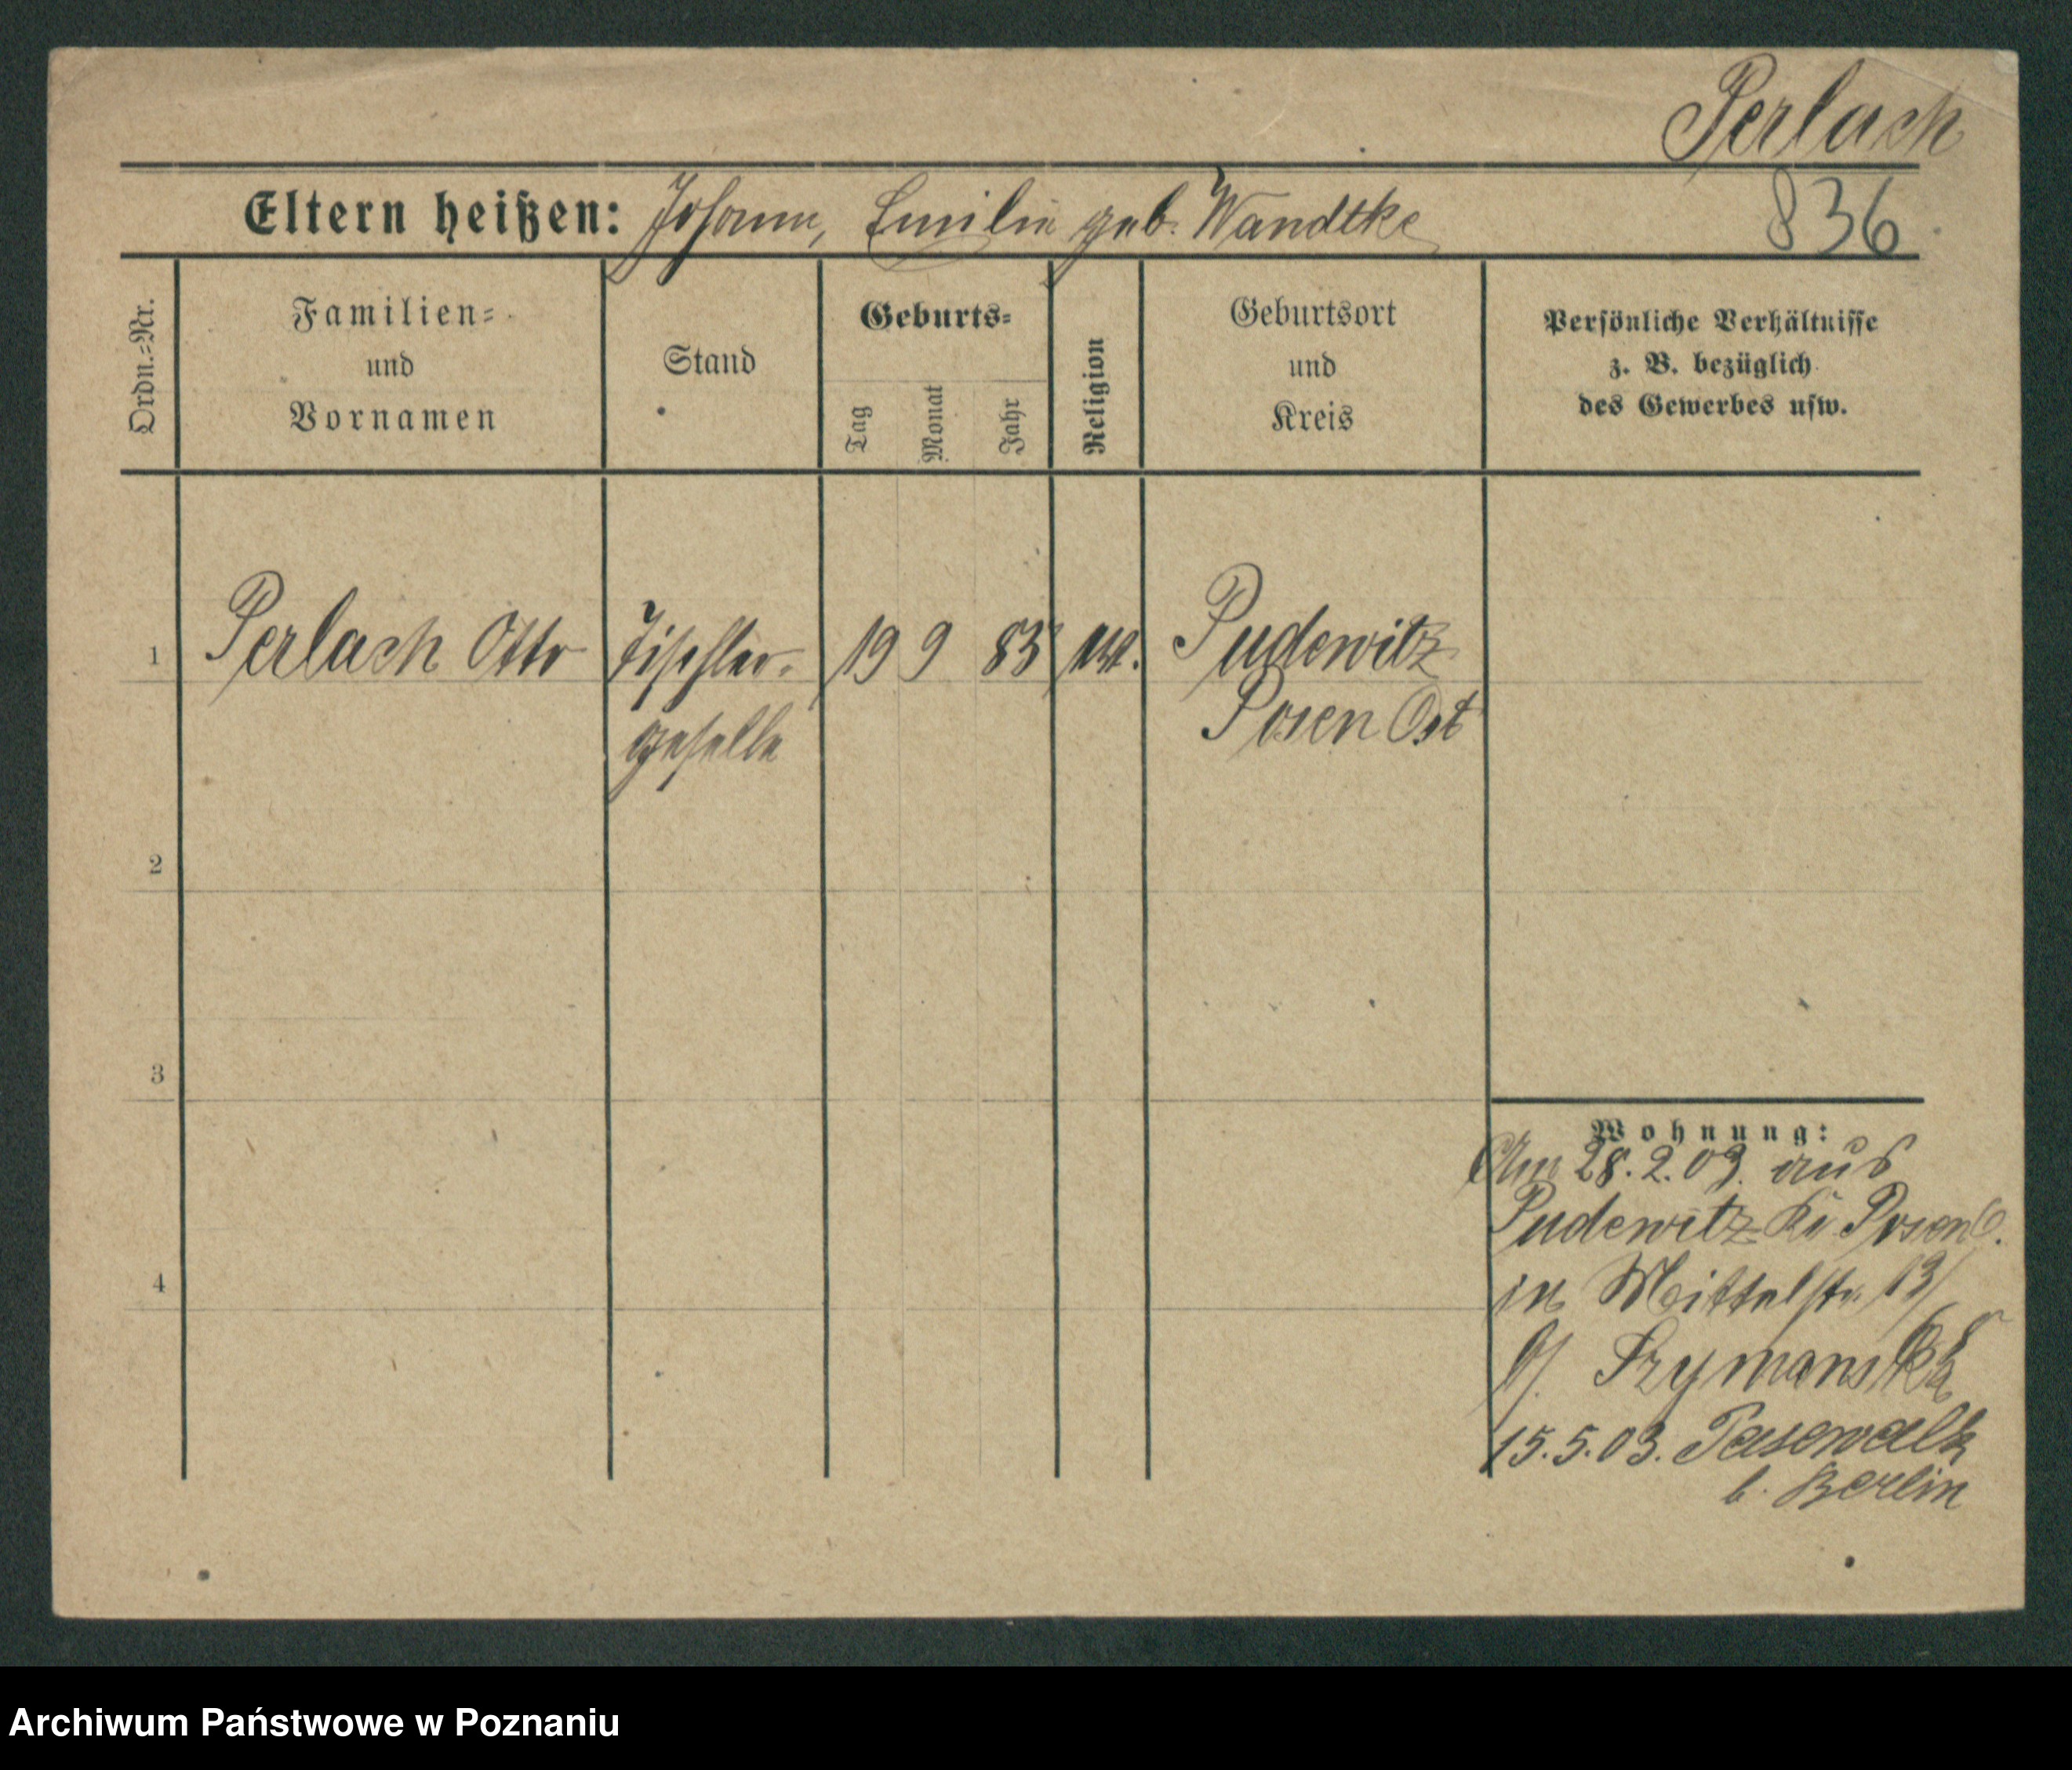 Perlach
Eltern heißen: Johann, Emilie geb. Wandtke 836
Ordn.=Nr.
Familien=
und
Vornamen
Stand
Geburts=
Tag
Monat
Jahr
Religion
Geburtsort
und
Kreis
Persönliche Verhältnisse
z. B. bezüglich
des Gewerbes usw.
1 Perlach Otto Tischler- 19 9 83 Pudewitz
geselle Posen Ost
2
3
4
Wohnung:
Am 28.2.03. aus
Pudewitz Kr Posen O.
in Mittelstr. 13/
b/. Szymanski
15.5.03. Pasewalk
b. Berlin
Archiwum Państwowe w Poznaniu